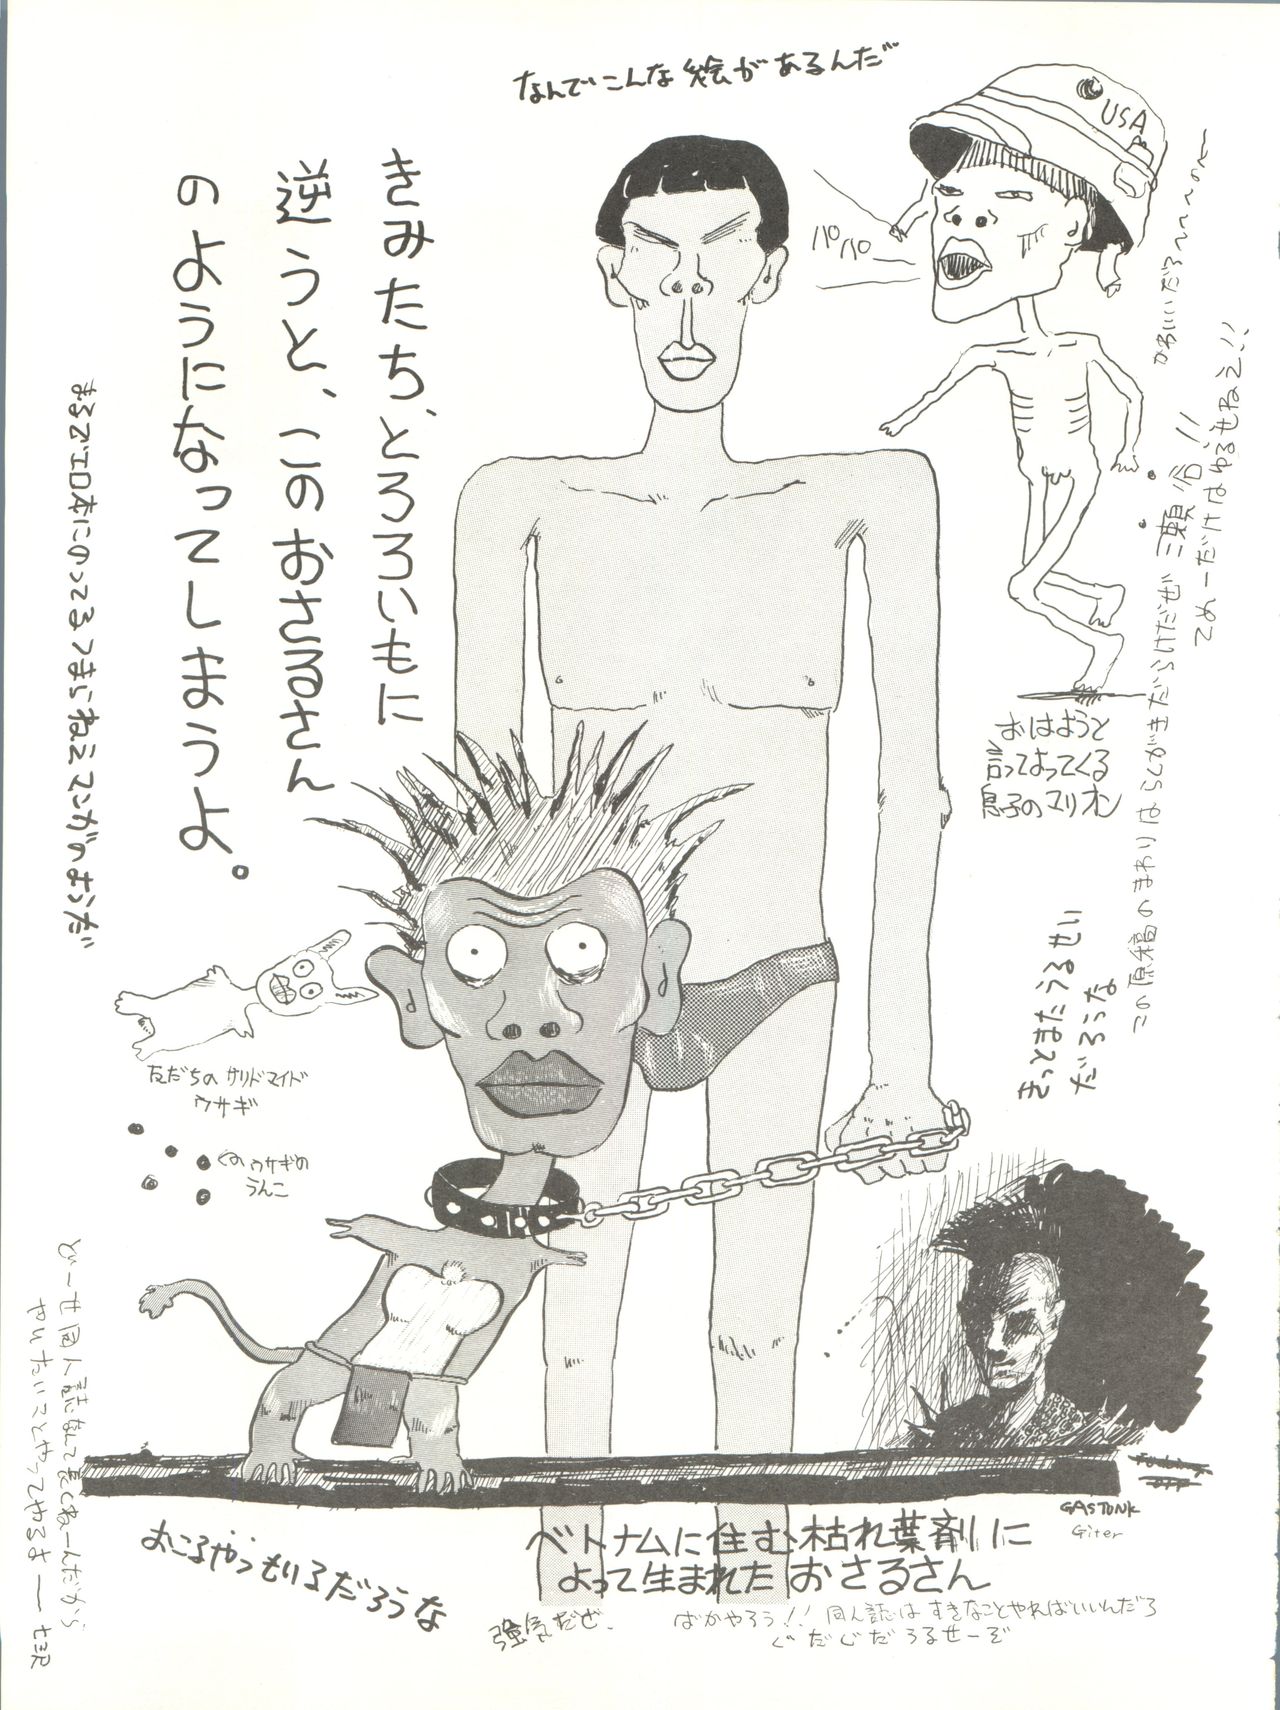 なんでこんな絵があるんだ
USA
パパー
かわいいだろ〜〜〜〜の〜
きみたち、とろろいもに
逆うと、このおさるさん
のようになってしまうよ。
まるでエロ本にのってるつまらねェマンガのようだ
おはようと
言ってよってくる
息子のマリオン
この原稿のまわりはらくがきだらけだぜ
てめーだけはゆるせねえ!!
きっとまたうるせい
だろうな
友だちのサリドマイド
ウサギ
くのウサギの
うんこ
どーせ同人誌なんて
やりたいことやってやるさ
GASTUNK
Giter
ベトナムに住む枯れ葉剤に
よって生まれたおさるさん
おこるやつもいるだろうな
強気だぜ.
ばかやろう!! 同人誌はすきなことやればいいんだろ
ぐだぐだうるせーぞ